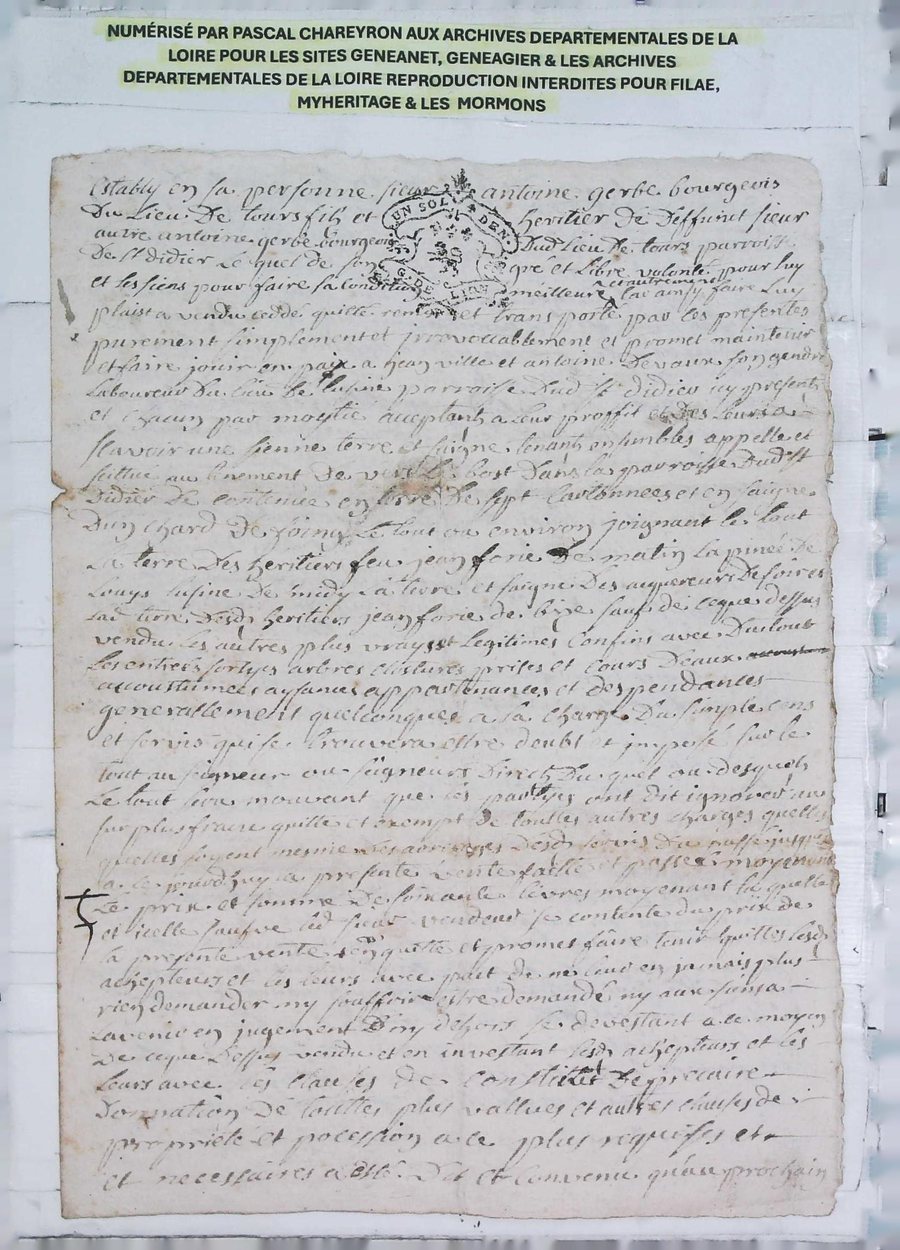 NUMÉRISÉ PAR PASCAL CHAREYRON AUX ARCHIVES DEPARTEMENTALES DE LA
LOIRE POUR LES SITES GENEANET, GENEAGIER & LES ARCHIVES
DEPARTEMENTALES DE LA LOIRE REPRODUCTION INTERDITES POUR FILAE,
MYHERITAGE & LES MORMONS
estably en sa personne sieur antoine gerbe bourgeois
UN SOL DEN
G. DE LION
du Lieu De tours fils et heritier de Deffunt sieur
autre antoine gerbe bourgeois Dud lieu De tours parroisse
De st didier Le quel de son gré et Libre volonté pour luy
et les siens pour faire sa condition meilleure car ainsy faire Luy
plaist a vendu ceddé quitté remis et transporté par ces presentes
purement simplement et irrevocablement et promet maintenir
et faire jouir en paix a jean ville et antoine Devaux son gendre
Laboureur du lieu De lusine parroisse Dud st didier icy presents
et chacun par moytié acceptant a leur proffit et des leurs a
scavoir une sienne terre et saigne tenant ensembles appellé et
scittué au tenement De bost Dans la parroisse Dud st
Didier De contenue en terre De sept cartonnees et en saigne
Dun chard De foing Le tout ou environ joignant le tout
La terre Des heritiers feu jean forie De matin La pinée De
Louys lusine De midy La terre et saigne Des acquereurs De soir et
Lad terre Desd heritiers jean forie de bize sauf de ce que dessus
vendu Les autres plus vrays et Legitimes confins avec Du tout
Les entrées sortyes arbres clostures prises et cours Deaux
accoustumées aysances appartenances et despendances
generallement quelconques a la charge Du simple cens
et servis qui se trouvera estre deubt et imposé sur le
tout au seigneur ou seigneurs Directs Du quel ou desquels
Le tout sera mouvant que les partyes ont dit ignorer au
surplus franc quitte et exempt De touttes autres charges quelles
quelles soyent mesme des arrerages Desd servis Du passé jusques
a ce jourdhuy la presente vente faitte et passée moyenant
Le prix et somme De soixante livres moyenant la quelle
et icelle sauf led sieur vendeur se contente du prix de
la presente vente en quitte et promet faire tenir quittes lesd
achepteurs et les leurs avec pact de ne leur en jamais plus
rien demander ny souffrir estre demandé ny aux siens a
Lavenir en jugement Dny dehors se devestant a ce moyen
De ce que Dessus vendu et en investant lesd achepteurs et les
Leurs avec les clauses de constitut De precaire
Donnation De touttes plus vallues et autres clauses de
proprieté et pocession a ce plus requises et
et necessaires a esté Dit et Convenu qu'au prochain